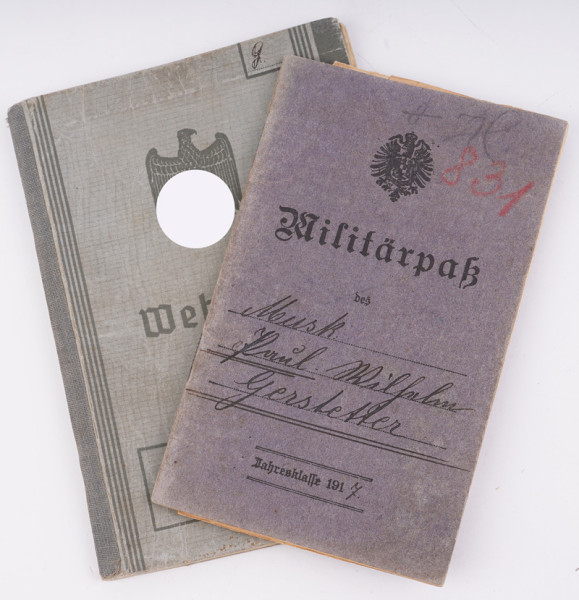 831
Militärpaß
des
Musk
Paul Wilhelm
Gerstetter
Jahresklasse 1917.
We